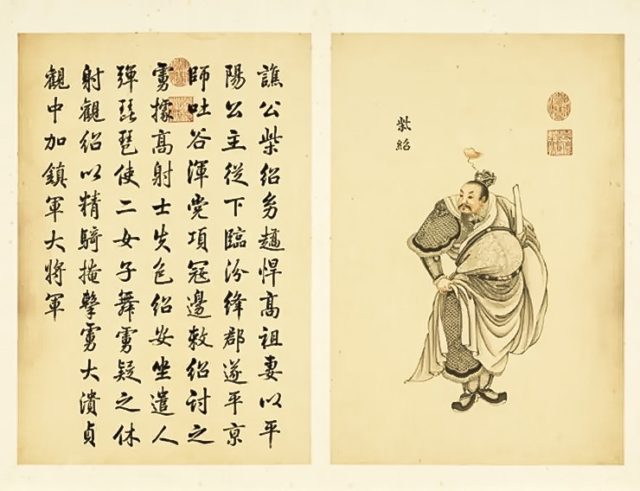 譙公柴紹幼趫悍高祖妻以平
陽公主從下臨汾絳郡遂平京
師吐谷渾党項冦邊敕紹討之
虜據高射士失色紹安坐遣人
彈琵琶使二女子舞虜疑之休
射觀紹以精騎掩擊虜大潰貞
觀中加鎮軍大將軍
柴紹